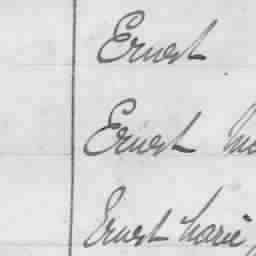 Ernest
Ernest
Ernest Marie